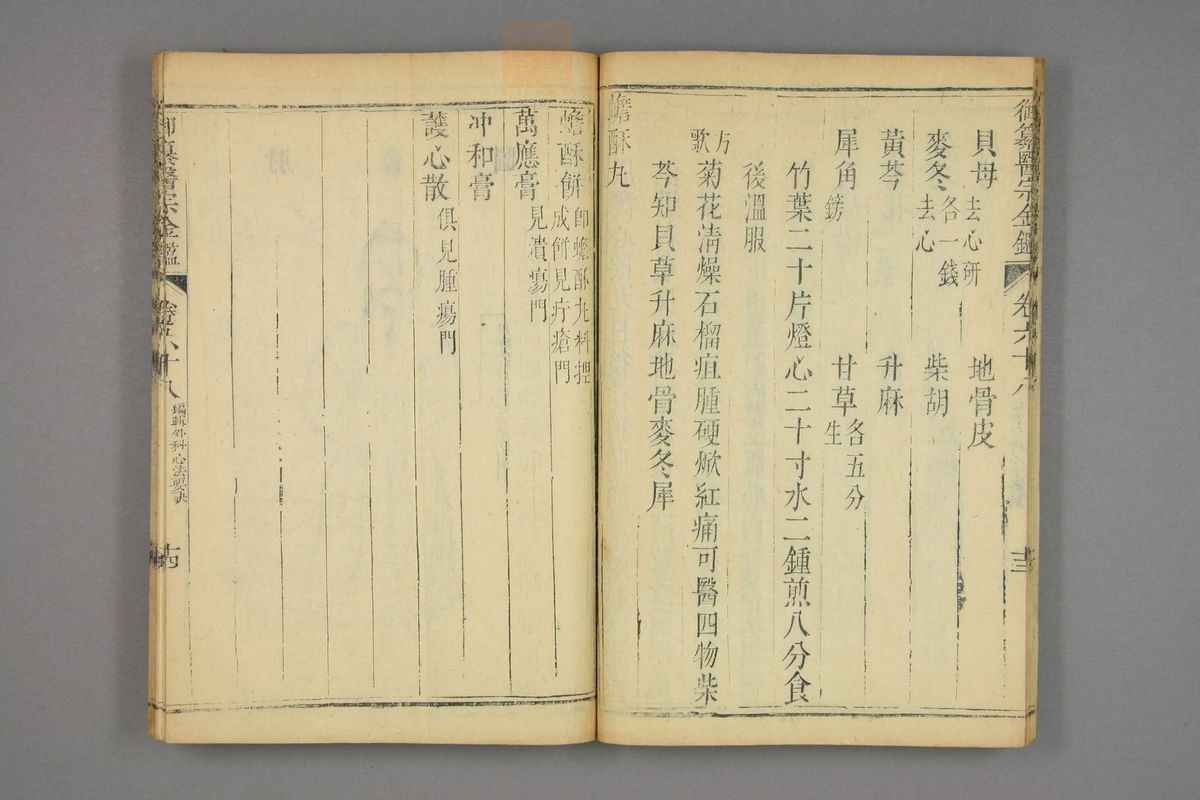 御纂醫宗金鑑 卷六十八 十三
貝母去心研 地骨皮
麥冬去心各一錢 柴胡
黃芩 升麻
犀角鎊 甘草生各五分
竹葉二十片燈心二十寸水二鍾煎八分食
後溫服
方歌 菊花淸燥石榴疽腫硬焮紅痛可醫四物柴
芩知貝草升麻地骨麥冬犀
蟾酥丸
蟾酥餅卽蟾酥丸料捏成餅見疔瘡門
萬應膏見潰瘍門
冲和膏
護心散俱見腫瘍門
御纂醫宗金鑑 卷六十八 編輯外科心法要訣 十四